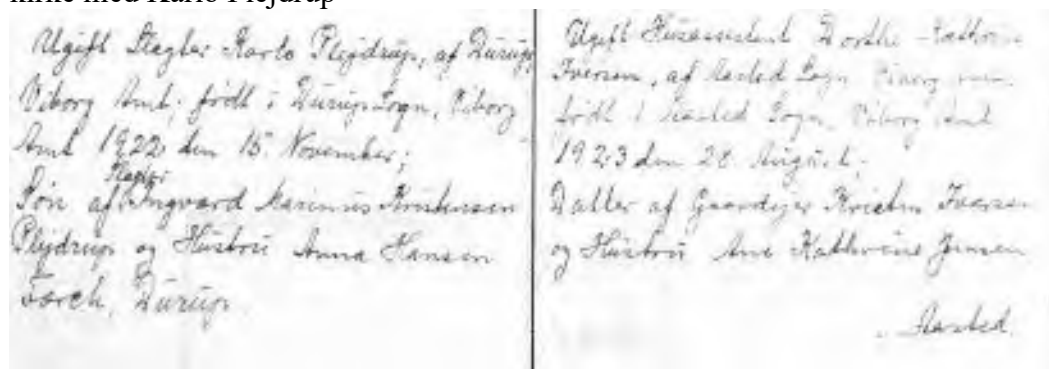 kirke med Karlo Plejdrup
Ugift Slagter Karlo Plejdrup, af Durup,
Viborg Amt; født i Durup Sogn, Viborg
Amt 1922 den 15. November;
Slagter
Søn af Ingvard Marinus Kristensen
Plejdrup og Hustru Anna Hansen
Færch, Durup.
Ugift Husassistent Dorthe Kathrine
Iversen, af Aasted Sogn Viborg Amt
født i Aasted Sogn, Viborg Amt
1923 den 28 August;
Datter af Gaardejer Kristen Iversen
og Hustru Ane Kathrine Jensen
Aasted.